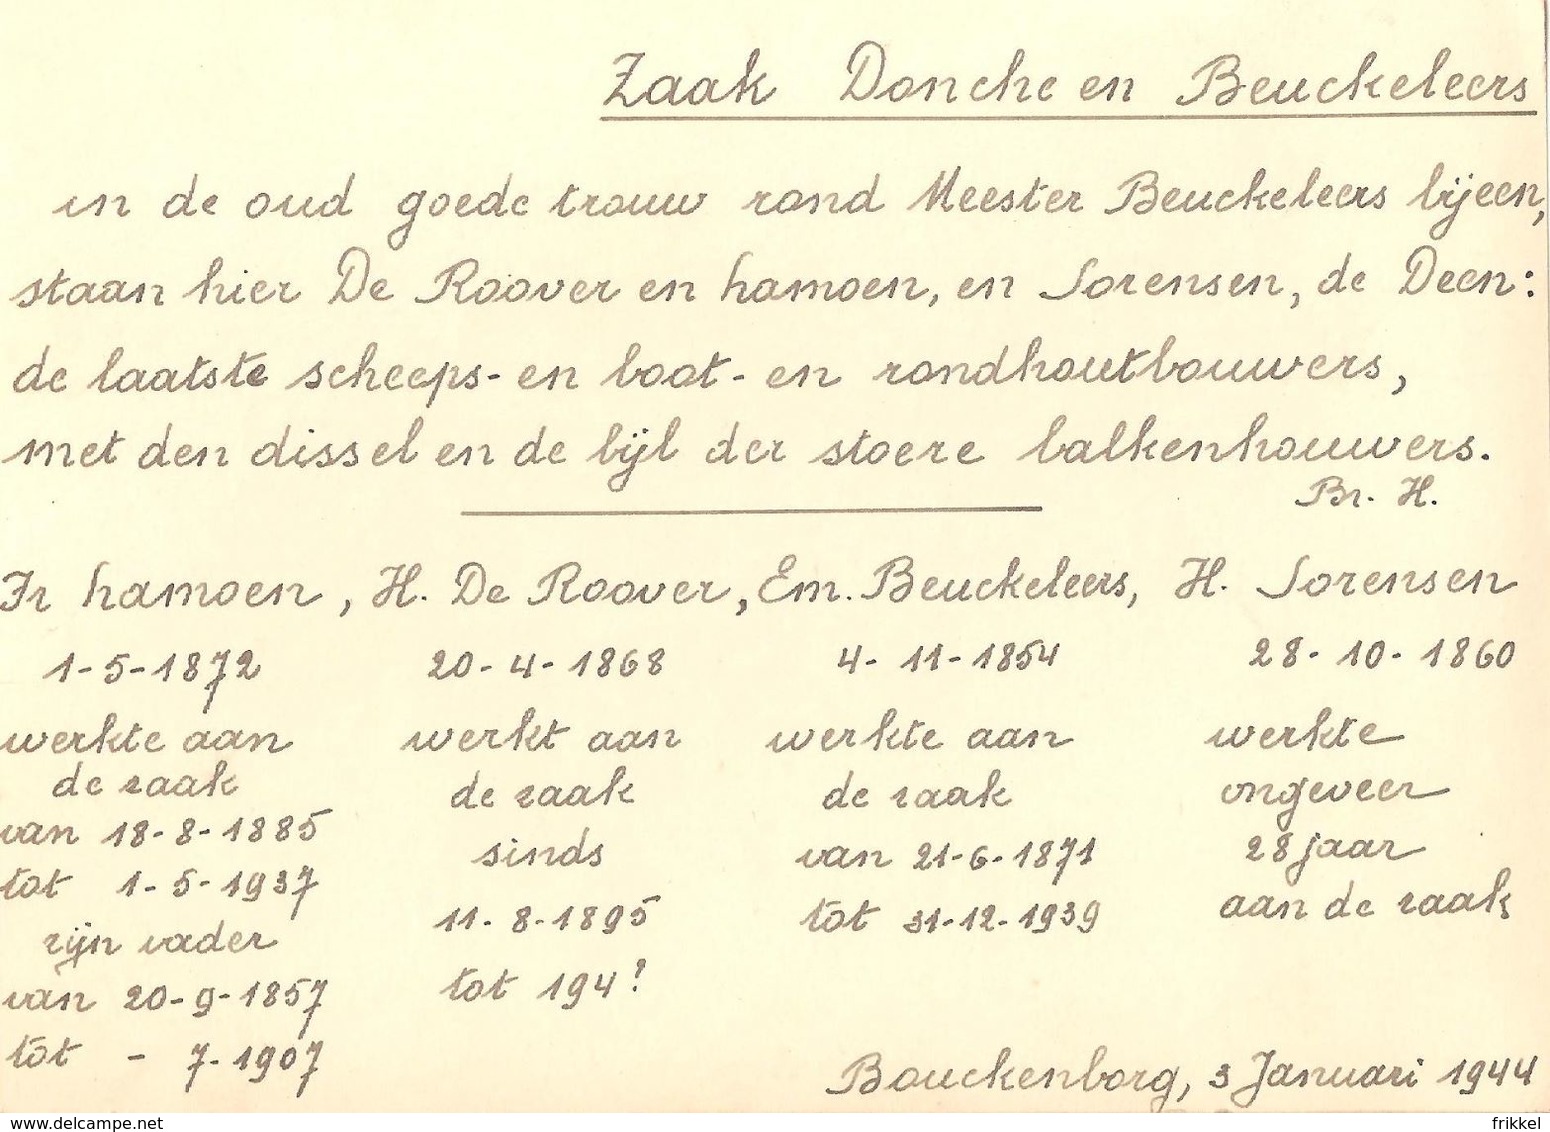 Zaak Donche en Beuckeleers
in de oud goede trouw rond Meester Beuckeleers bijeen,
staan hier De Roover en hamoen, en Sorensen, de Deen:
de laatste scheeps- en boot- en rondhoutbouwers,
met den dissel en de bijl der stoere balkenhouwers.
Br. H.
Fr hamoen, H. De Roover, Em. Beuckeleers, H. Sorensen
1-5-1872 20-4-1868 4-11-1854 28-10-1860
werkte aan werkt aan werkte aan werkte
de zaak de zaak de zaak ongeveer
van 18-8-1885 sinds van 21-6-1871 28 jaar
tot 1-5-1937 11-8-1895 tot 31-12-1939 aan de zaak
zijn vader tot 194?
van 20-9-1857
tot - 7-1907
Bouckenborg, 3 Januari 1944
www.delcampe.net
frikkel